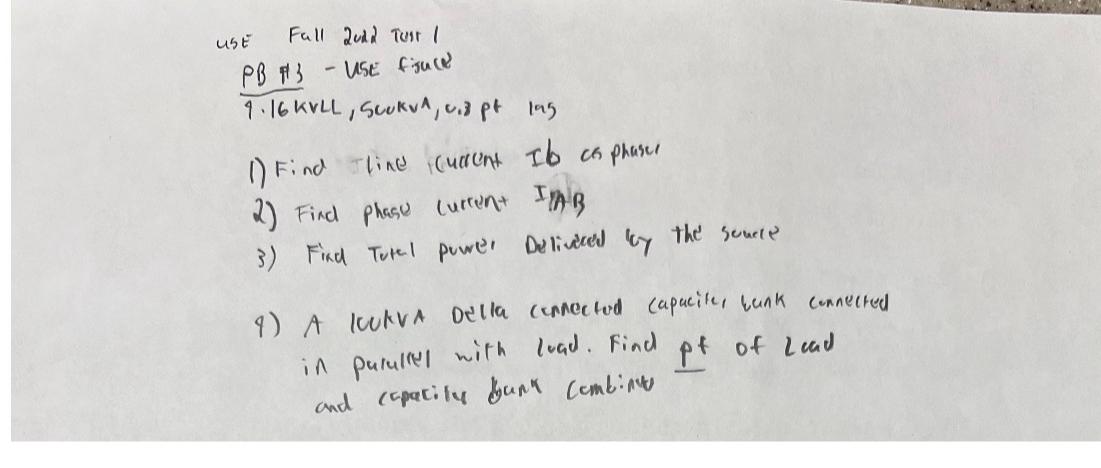 USE Fall 2022 Test 1
PB #3 - USE figure
4.16 KVLL, 500KVA, 0.8 pf lag
1) Find line current Ib as phasor
2) Find phase current IAB
3) Find Total power Delivered by the source
4) A 100KVA Della connected capacitor bank connected
in parallel with load. Find pf of Load
and capacitor bank combined